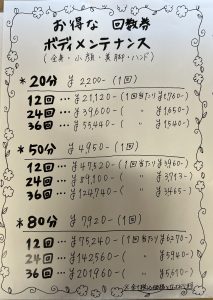 お得な 回数券
ボディメンテナンス
(全身・小顔・美脚・ハンド)
*20分 ¥2200-(1回)
12回…¥21,120-(1回当たり¥1,760-)
24回…¥39,600-( 〃 ¥1,650-)
36回…¥55,440-( 〃 ¥1,540-)
*50分 ¥4950-(1回)
12回…¥47,520-(1回当たり¥3,960-)
24回…¥89,100-( 〃 ¥3,713-)
36回…¥124,740-( 〃 ¥3,465-)
*80分 ¥7920-(1回)
12回…¥75240-(1回当たり¥6270-)
24回…¥142560-( 〃 ¥5940-)
36回…¥201,960-( 〃 ¥5,610-)